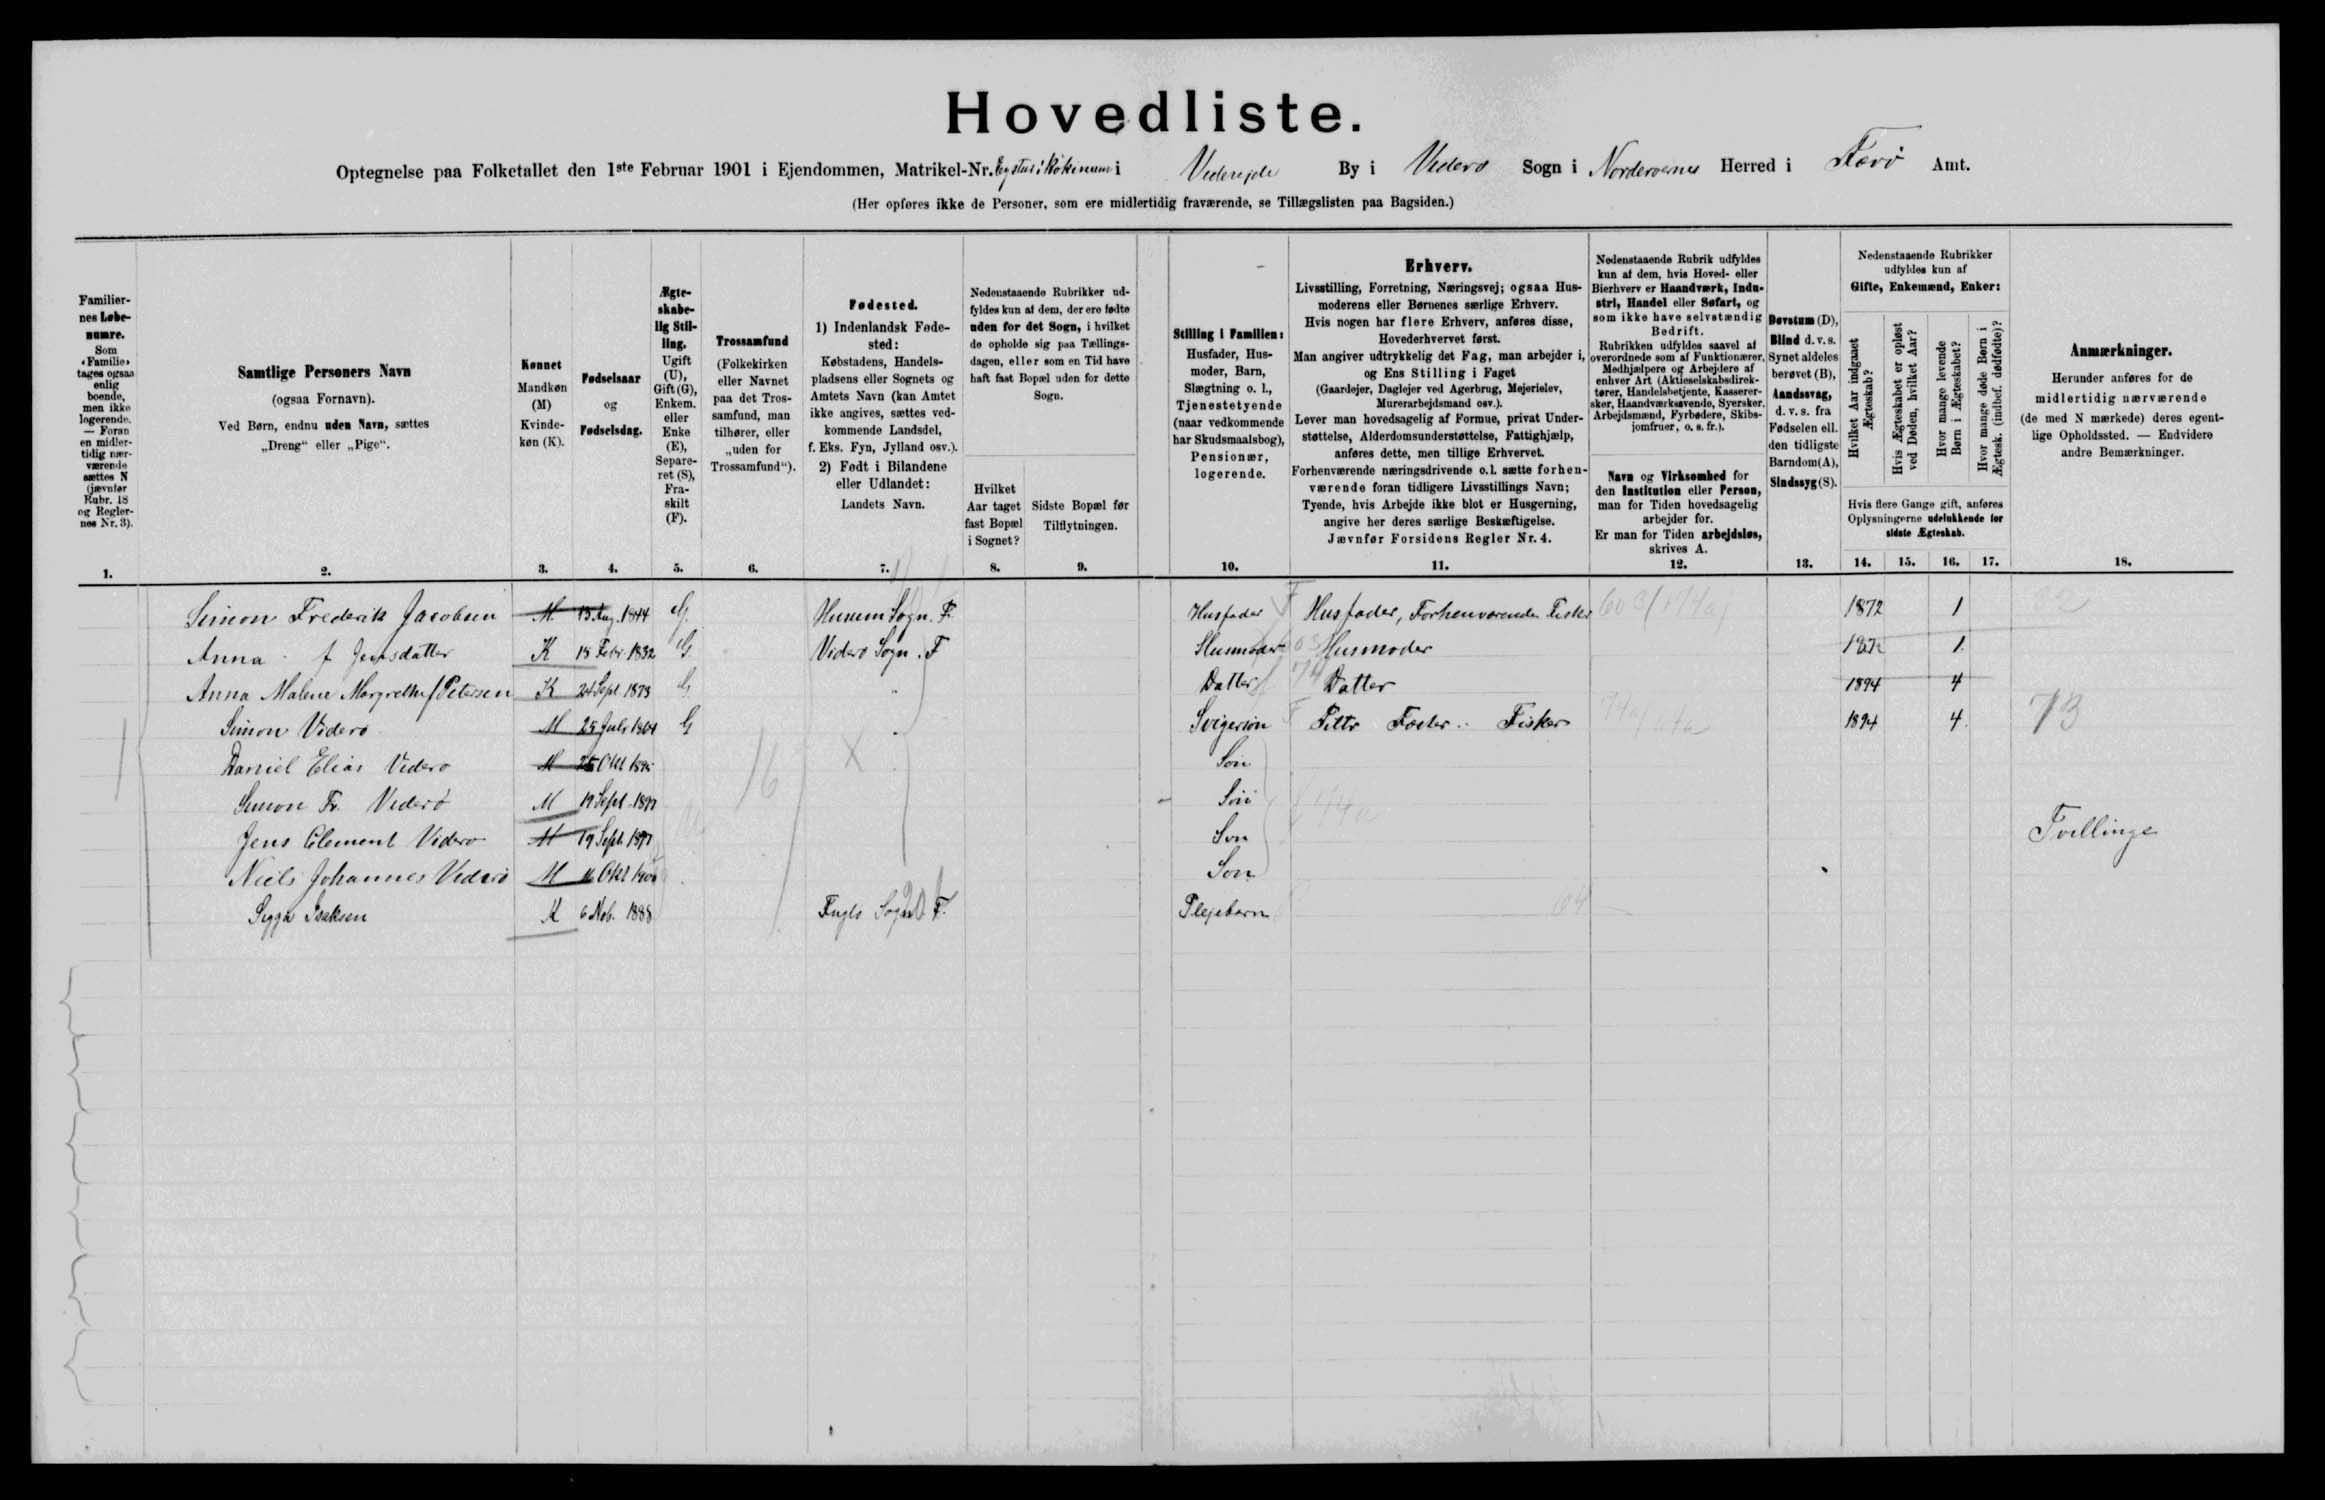 Hovedliste.
Optegnelse paa Folketallet den 1ste Februar 1901 i Ejendommen, Matrikel-Nr. i Viderejde By i Viderø Sogn i Norderøernes Herred i Færø Amt.
(Her opføres ikke de Personer, som ere midlertidig fraværende, se Tillægslisten paa Bagsiden.)
Familier-
nes Løbe-
numre.
Som
«Familie»
tages ogsaa
enlig
boende,
men ikke
logerende.
— Foran
en midler-
tidig nær-
værende
sættes N
(jævnfør
Rubr. 18
og Regler-
nes Nr. 3).
Samtlige Personers Navn
(ogsaa Fornavn).
Ved Børn, endnu uden Navn, sættes
„Dreng“ eller „Pige“.
Kønnet
Mandkøn
(M)
Kvinde-
køn (K).
Fødselsaar
og
Fødselsdag.
Ægte-
skabe-
lig Stil-
ling.
Ugift
(U),
Gift (G),
Enkem.
eller
Enke
(E),
Separe-
ret (S),
Fra-
skilt
(F).
Trossamfund
(Folkekirken
eller Navnet
paa det Tros-
samfund, man
tilhører, eller
„uden for
Trossamfund“).
Fødested.
1) Indenlandsk Føde-
sted:
Købstadens, Handels-
pladsens eller Sognets og
Amtets Navn (kan Amtet
ikke angives, sættes ved-
kommende Landsdel,
f. Eks. Fyn, Jylland osv.).
2) Født i Bilandene
eller Udlandet:
Landets Navn.
Nedenstaaende Rubrikker ud-
fyldes kun af dem, der ere fødte
uden for det Sogn, i hvilket
de opholde sig paa Tællings-
dagen, eller som en Tid have
haft fast Bopæl uden for dette
Sogn.
Hvilket
Aar taget
fast Bopæl
i Sognet?
Sidste Bopæl før
Tilflytningen.
Stilling i Familien:
Husfader, Hus-
moder, Barn,
Slægtning o. l.,
Tjenestetyende
(naar vedkommende
har Skudsmaalsbog),
Pensionær,
logerende.
Erhverv.
Livsstilling, Forretning, Næringsvej; ogsaa Hus-
moderens eller Børnenes særlige Erhverv.
Hvis nogen har flere Erhverv, anføres disse,
Hovederhvervet først.
Man angiver udtrykkelig det Fag, man arbejder i,
og Ens Stilling i Faget
(Gaardejer, Daglejer ved Agerbrug, Mejerielev,
Murerarbejdsmand osv.).
Lever man hovedsagelig af Formue, privat Under-
støttelse, Alderdomsunderstøttelse, Fattighjælp,
anføres dette, men tillige Erhvervet.
Forhenværende næringsdrivende o. l. sætte forhen-
værende foran tidligere Livsstillings Navn;
Tyende, hvis Arbejde ikke blot er Husgerning,
angive her deres særlige Beskæftigelse.
Jævnfør Forsidens Regler Nr. 4.
Nedenstaaende Rubrik udfyldes
kun af dem, hvis Hoved- eller
Bierhverv er Haandværk, Indu-
stri, Handel eller Søfart, og
som ikke have selvstændig
Bedrift.
Rubrikken udfyldes saavel af
overordnede som af Funktionærer,
Medhjælpere og Arbejdere af
enhver Art (Aktieselskabsdirek-
tører, Handelsbetjente, Kasserer-
sker, Haandværkssvende, Syersker,
Arbejdsmænd, Fyrbødere, Skibs-
jomfruer, o. s. fr.).
Navn og Virksomhed for
den Institution eller Person,
man for Tiden hovedsagelig
arbejder for.
Er man for Tiden arbejdsløs,
skrives A.
Døvstum (D),
Blind d. v. s.
Synet aldeles
berøvet (B),
Aandssvag,
d. v. s. fra
Fødselen ell.
den tidligste
Barndom (A),
Sindssyg (S).
Nedenstaaende Rubrikker
udfyldes kun af
Gifte, Enkemænd, Enker:
Hvilket Aar indgaaet
Ægteskab?
Hvis Ægteskabet er opløst
ved Døden, hvilket Aar?
Hvor mange levende
Børn i Ægteskabet?
Hvor mange døde Børn i
Ægtesk. (indbef. dødfødte)?
Hvis flere Gange gift, anføres
Oplysningerne udelukkende for
sidste Ægteskab.
Anmærkninger.
Herunder anføres for de
midlertidig nærværende
(de med N mærkede) deres egent-
lige Opholdssted. — Endvidere
andre Bemærkninger.
1. 2. 3. 4. 5. 6. 7. 8. 9. 10. 11. 12. 13. 14. 15. 16. 17. 18.
Simon Frederik Jacobsen M. 13 Aug. 1844 G. Husum Sogn. F. Husfader Husfader, Forhenværende Fisker 1872 1
Anna f Jensdatter K 18 Febr. 1832 G Viderø Sogn. F Husmoder Husmoder 1872 1
Anna Malene Margrethe f Petersen K 24 Sept 1873 G " Datter Datter 1894 4
Simon Viderø M 25 Juli G " Svigersøn Fisker 1894 4. 73
Daniel Elias Viderø M Okt Søn
Simon Fr. Viderø M 19 Sept. 1897 Søn
Jens Clement Viderø M 19 Sept 1897 Søn Tvillinge
Niels Johannes Viderø M 16 Okt 1900 Søn
Sigga Isaksen K 6 Nob. 1888 Fuglø Sogn F. Plejebarn